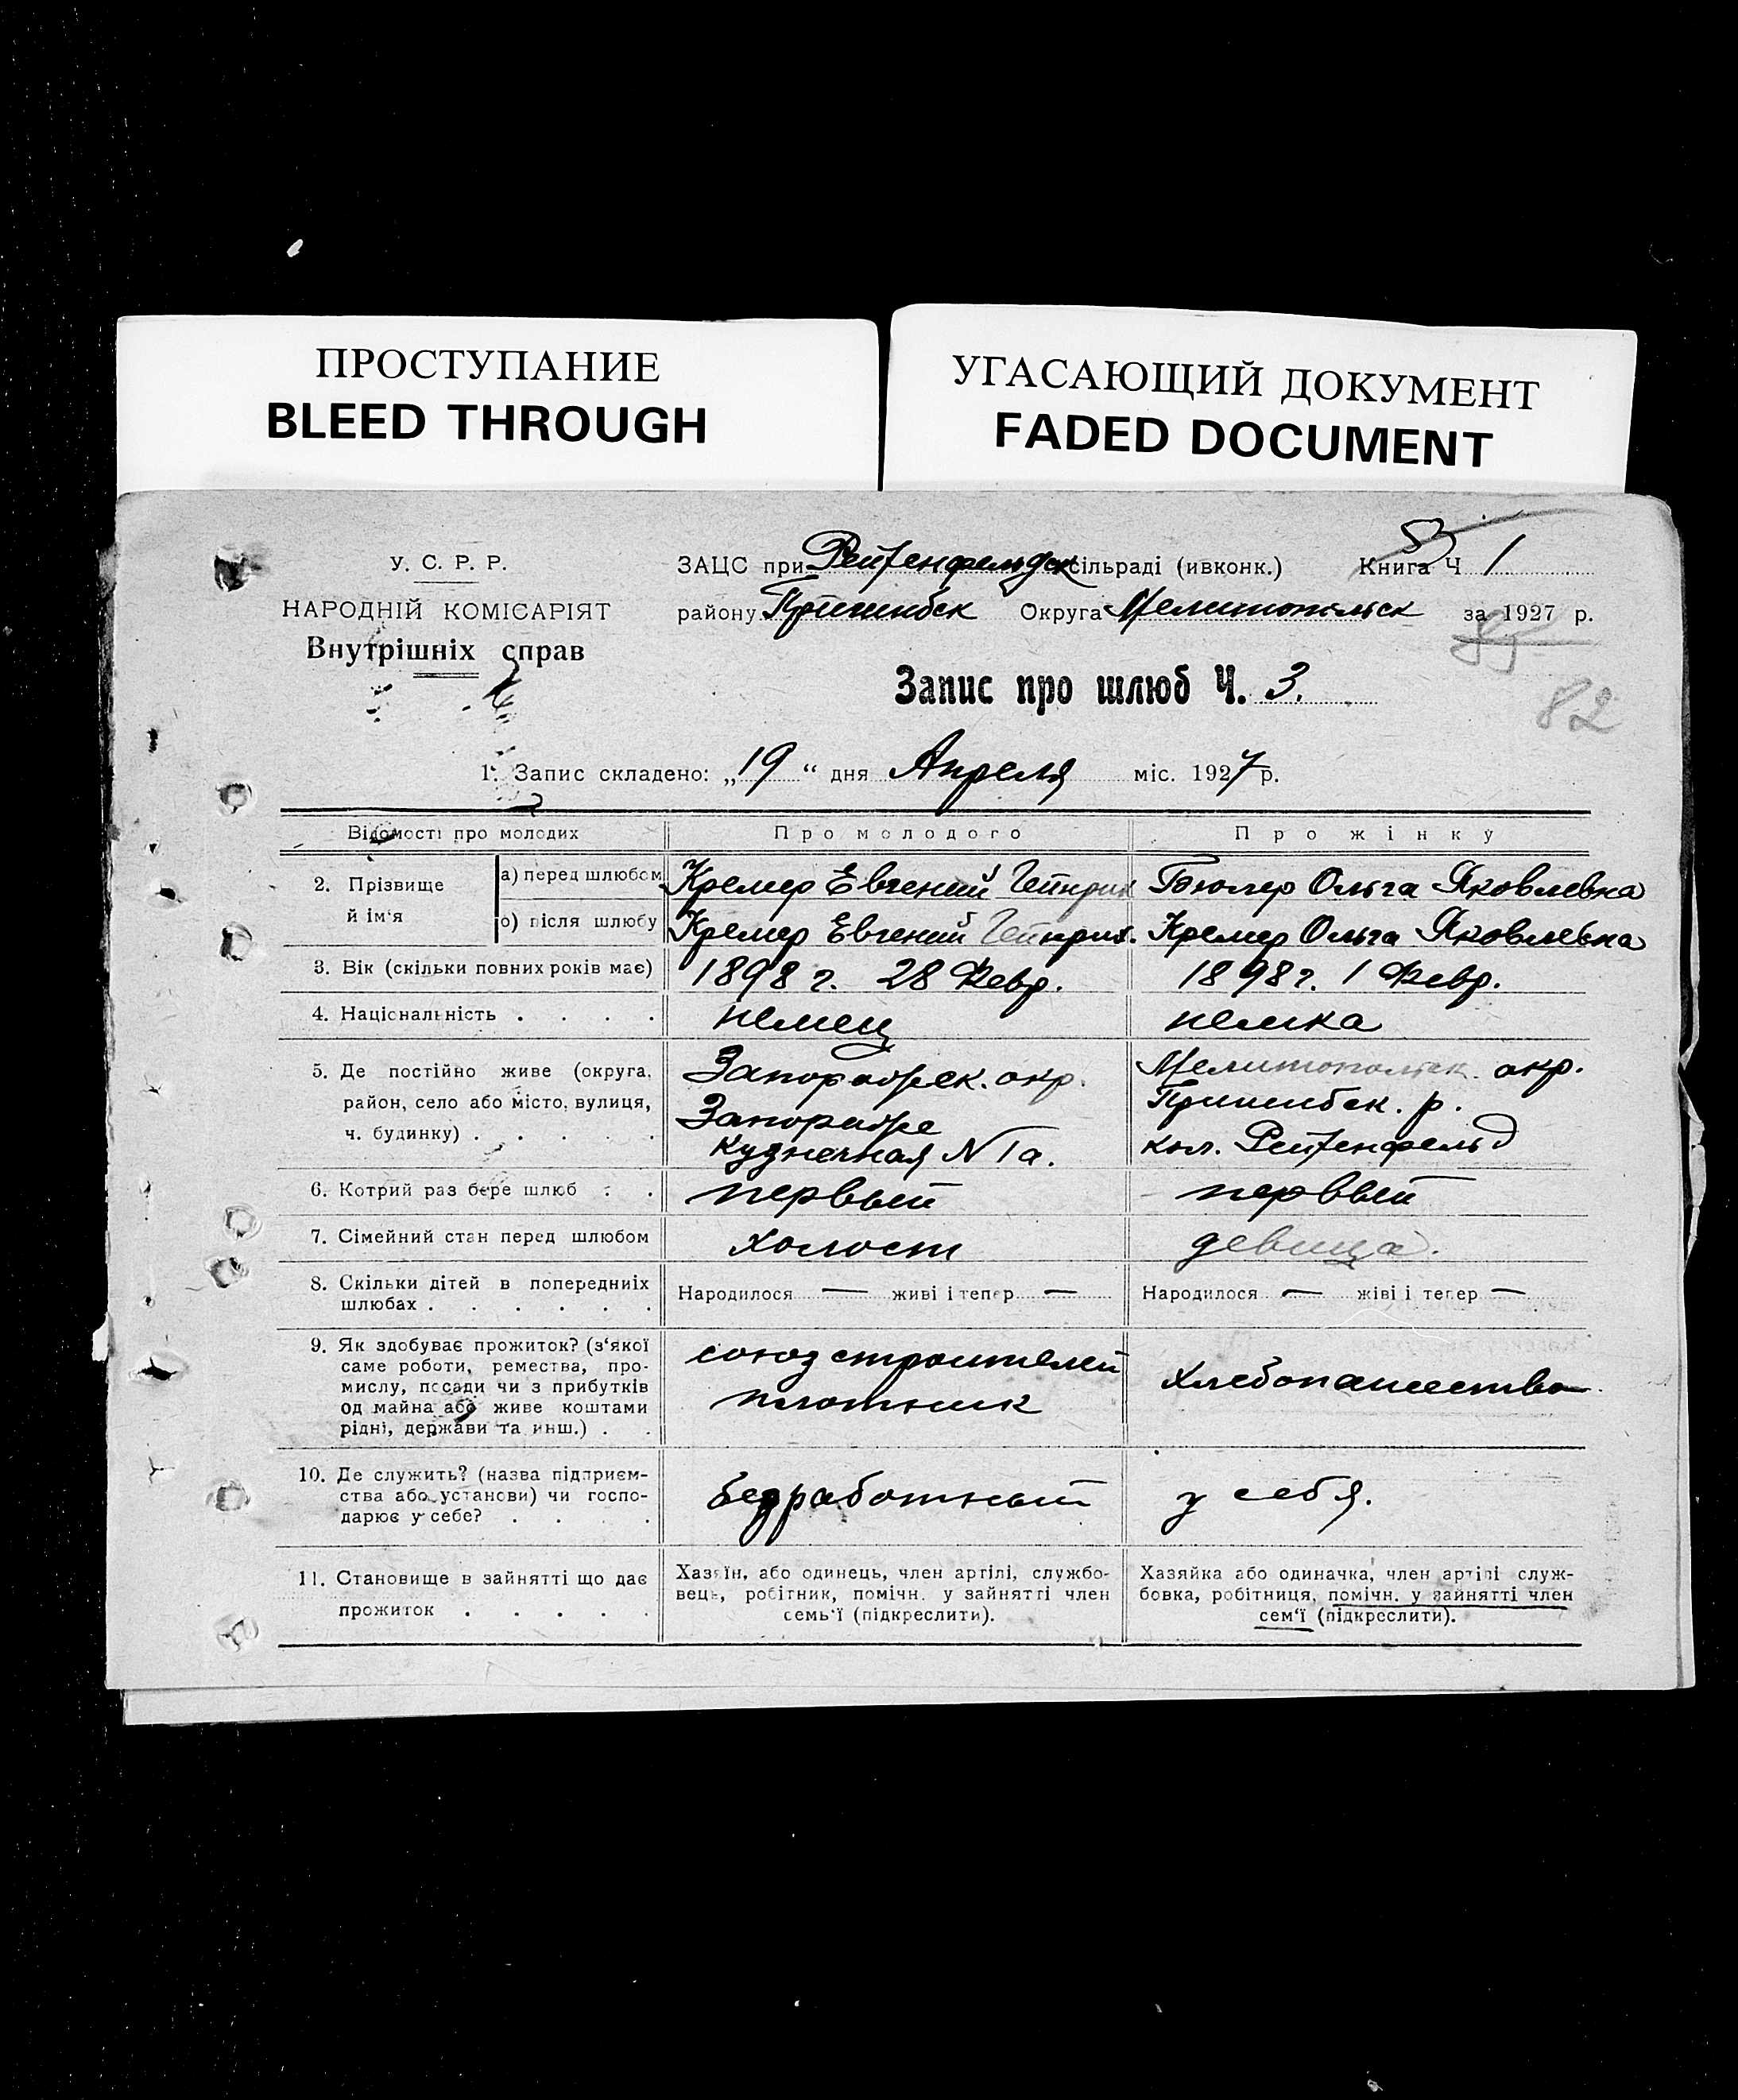 ПРОСТУПАНИЕ
BLEED THROUGH
УГАСАЮЩИЙ ДОКУМЕНТ
FADED DOCUMENT
У. С. Р. Р.
НАРОДНІЙ КОМІСАРІЯТ
Внутрішніх справ
ЗАЦС при Рейхенфельдск сільраді (ивконк.) Книга Ч 1
району Пришибск Округа Мелитопольск за 1927 р.
85
82
Запис про шлюб Ч. 3.
1. Запис складено: „19“ дня Апреля міс. 1927 р.
Відомості про молодих
Про молодого
Про жінку
2. Прізвище й ім'я
а) перед шлюбом Кремер Евгений Гейнрих Бюлер Ольга Яковлевна
о) після шлюбу Кремер Евгений Гейнрих. Кремер Ольга Яковлевна
3. Вік (скільки повних років має) 1898 г. 28 Февр. 1898 г. 1 Февр.
4. Національність . . . . немец немка
5. Де постійно живе (округа,
район, село або місто, вулиця,
ч. будинку) . . . . .
Запорожск. окр.
Запорожье
кузнечная N 1а.
Мелитопольск. окр.
Пришибск. р.
кол. Рейхенфельд
6. Котрий раз бере шлюб . . первый первый
7. Сімейний стан перед шлюбом холост девица.
8. Скільки дітей в попередниіх
шлюбах . . . . . .
Народилося — живі і тепер —
Народилося — жіві і тепер —
9. Як здобуває прожиток? (з'якої
саме роботи, ремества, про-
мислу, посади чи з прибутків
од майна або живе коштами
рідні, держави та инш.) . .
союз строителей
плотник
хлебопашество
10. Де служить? (назва підприєм-
ства або установи) чи госпо-
дарює у себе? . . . .
безработный
у себя.
11. Становище в зайнятті що дає
прожиток . . . . .
Хазяїн, або одинець, член артілі, службо-
вець, робітник, помічн. у зайнятті член
семь'ї (підкреслити).
Хазяйка або одиначка, член артілі служ-
бовка, робітниця, помічн. у зайнятті член
сем'ї (підкреслити).